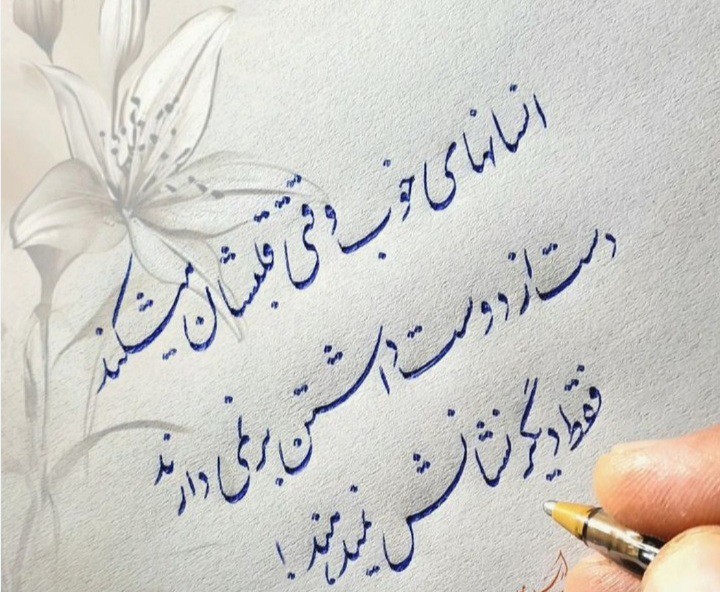 انسانهای خوب وقتی قلبشان میشکند
دست از دوست داشتن برنمی دارند
فقط دیگر نشانش نمیدهند!